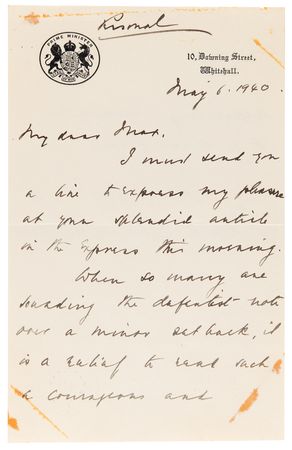 Personal
PRIME MINISTER
10, Downing Street,
Whitehall.
May 6. 1940.
My dear Max,
I must send you
a line to express my pleasure
at your splendid article
in the Express this morning.
When so many are
sounding the defeatist note
over a minor setback, it
is a relief to read such
a courageous and